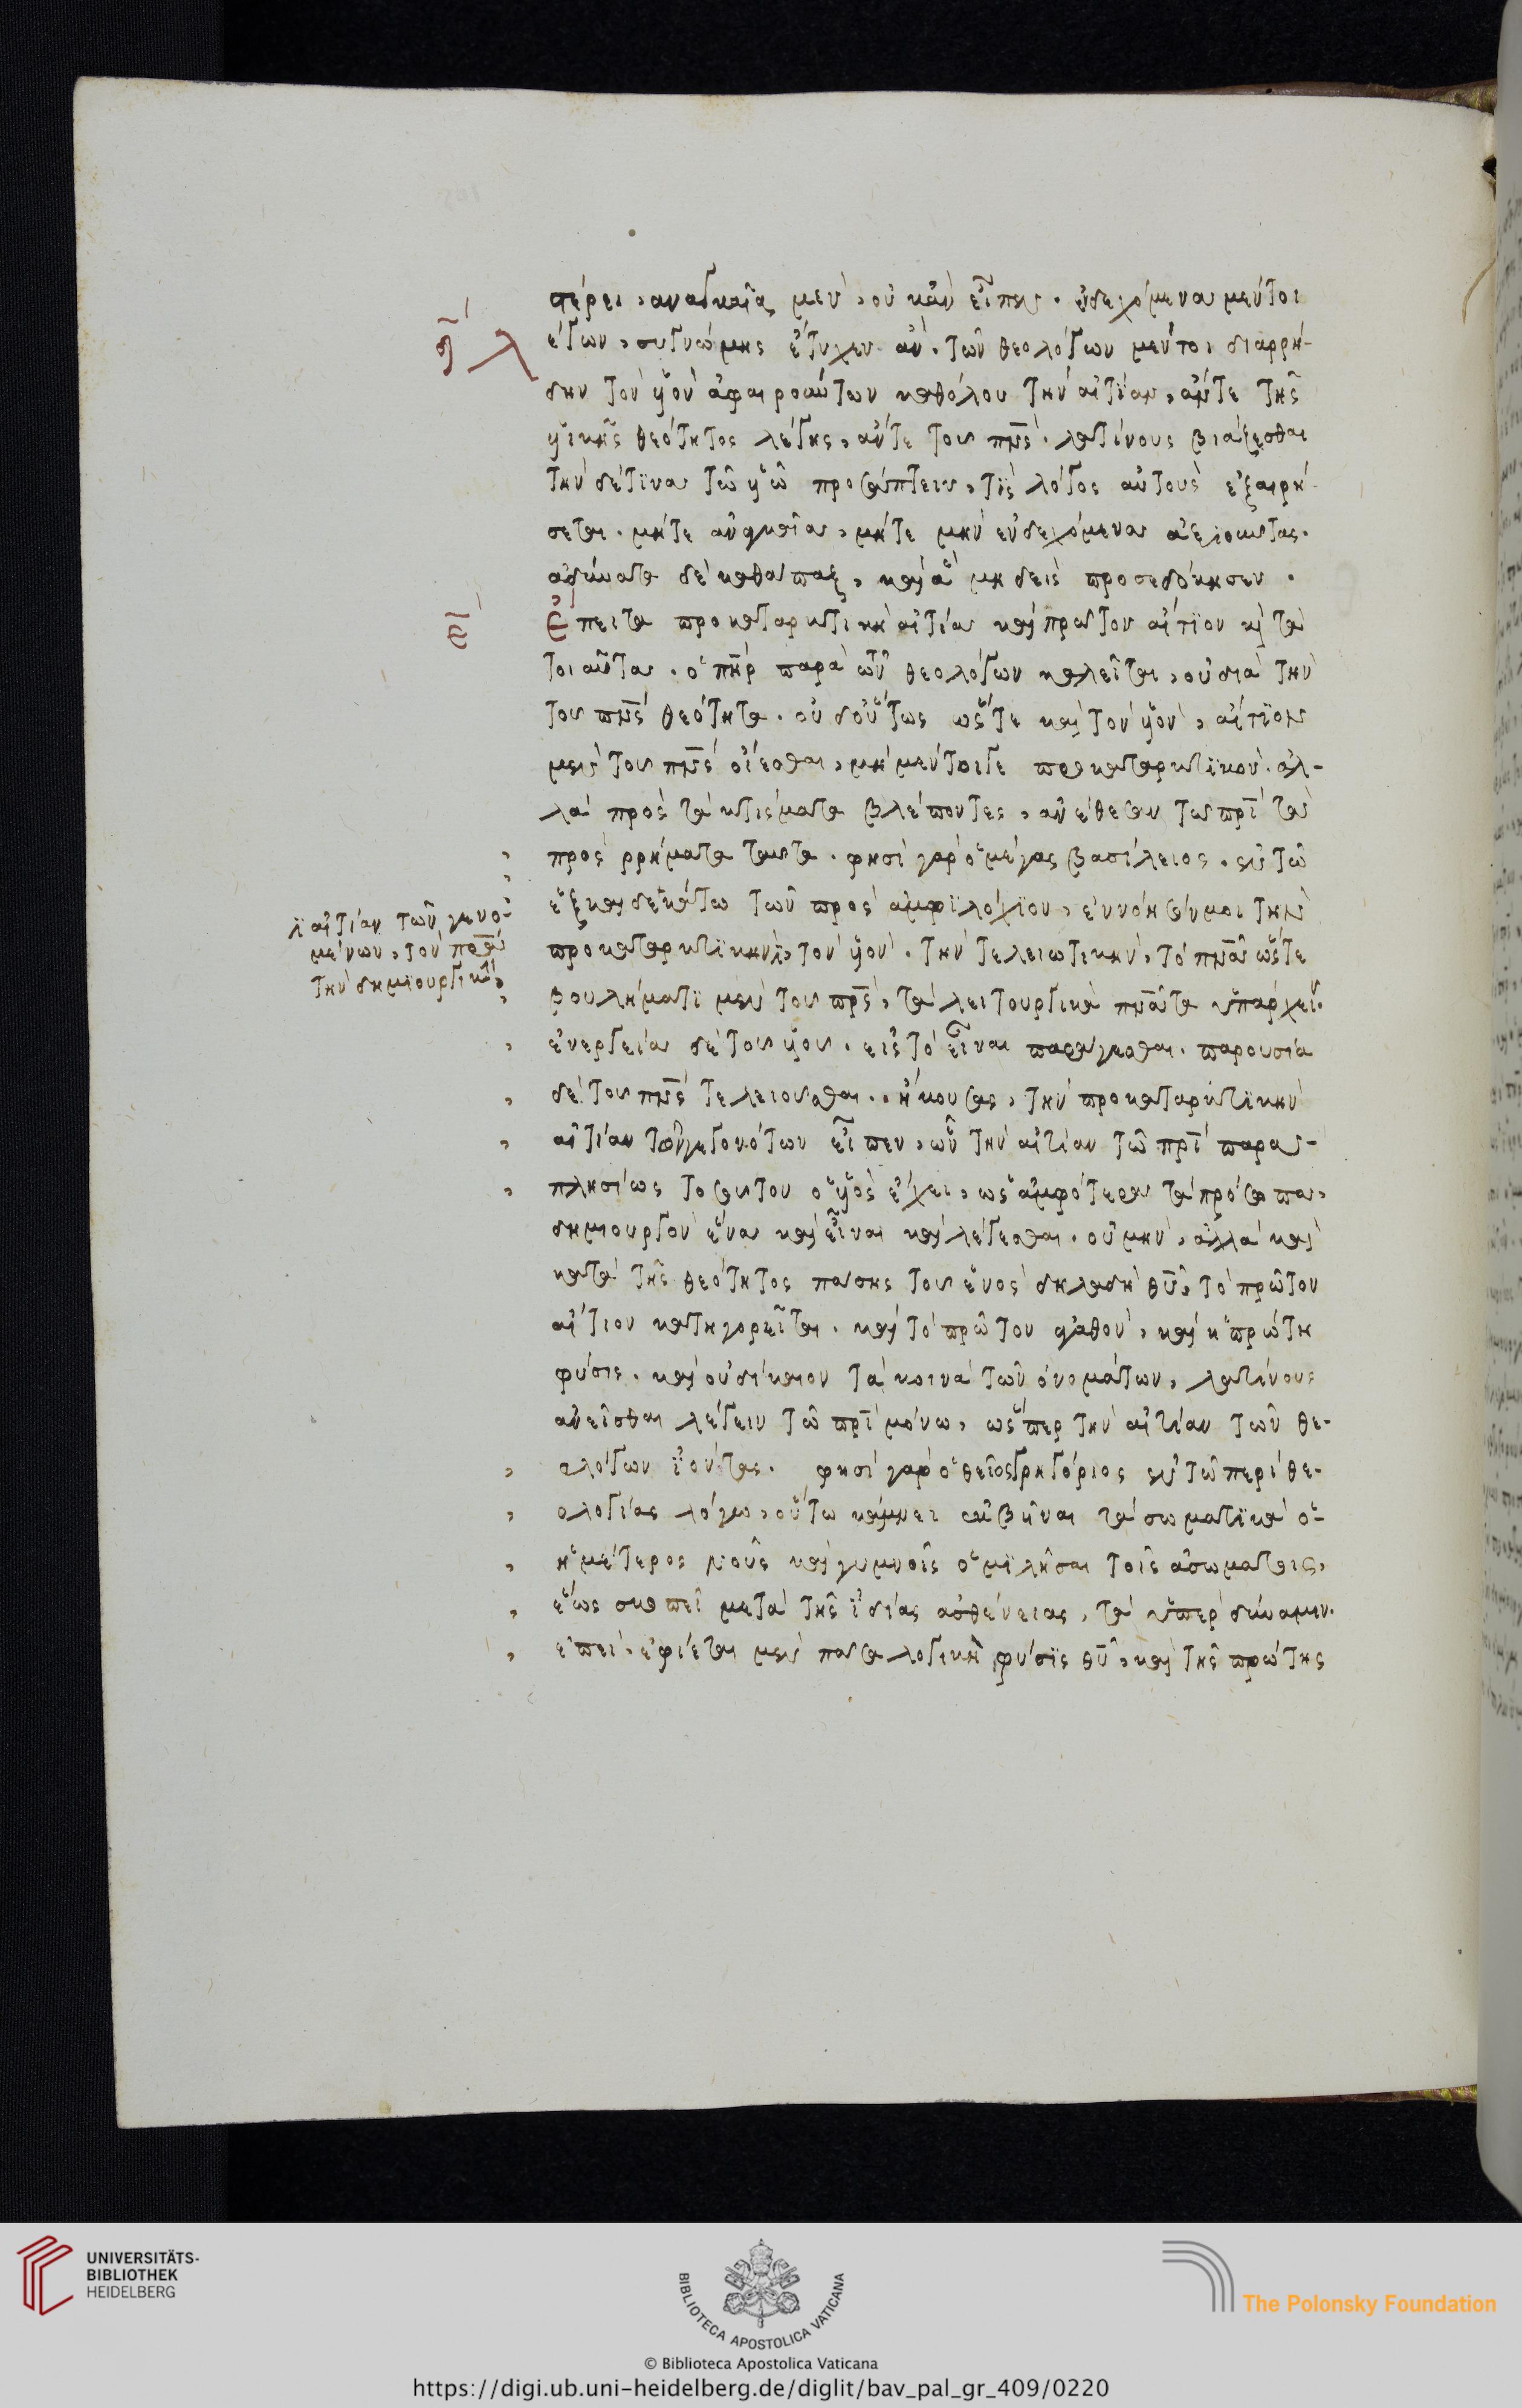 φέρει, αναγκαῖα μὲν, οὐκ ἂν εἶπεν. ἐνδεχόμενα μέντοι
λέγων, συγνώμης ἔτυχεν ἄν. τῶν θεολόγων μέντοι διαρρή-
δην τὸν υἱὸν ἀφαιρούντων καθόλου τὴν αἰτίαν, ἄν τε τῆς
υἱικῆς θεότητος λέγης, ἄν τε τοῦ πνς. λατίνους βιάζεσθαι
τὴν δέ τινα τῶ υἱῶ προσάπτειν, τίς λόγος αὐτοὺς ἐξαιρή-
σεται. μήτε ἀναγκαῖα, μήτε μὴν ἐνδεχόμενα ἀξιοῦντας.
ἀδύνατα δὲ καθάπαξ, καὶ ἃ μηδεὶς προσεδόκησεν.
Ἔπειτα προκαταρκτικὴ αἰτία καὶ πρῶτον αἴτϊον κὶ τὰ
τοιαῦτα. ὁ πηρ παρὰ τῶν θεολόγων καλεῖται, οὐ διὰ τὴν
τοῦ πνς θεότητα. οὐδ' οὕτως ὥστε καὶ τὸν υἱὸν, αἴτϊον
μὲν τοῦ πνς οἴεσθαι, μὴ μέντοιγε προκαταρκτϊκόν. ἀλ-
λὰ πρὸς τὰ κτίσματα βλέποντες, ἀνέθεσαν τῶ πρι τὰ
προσρρήματα ταῦτα. φησὶ γὰρ ὁ μέγας βασίλειος. ἐν τῶ
ἑξκαιδεκάτω τῶν πρὸς ἀμφϊλόχϊον, ἐννόησόν μοι τὴν
προκαταρκτϊκὴν, τὸν υἱόν. τὴν τελειωτικὴν, τὸ πνα ὥστε
βουλήματϊ μὲν τοῦ πρς, τὰ λειτουργικὰ πνατα ὑπάρχειν.
ἐνεργεία δὲ τοῦ υἱοῦ. εἰς τὸ εἶναι παράγεσθαι. παρουσία
δὲ τοῦ πνς τελειοῦσθαι.. ἤκουσας, τὴν προκαταρκτϊκὴν
αἰτίαν τῶν γεγονότων εἶπεν, ὧν τὴν αἰτίαν τῶ πρι παρα-
πλησίως τοσοῦτον ὁ υἱὸς ἔχει, ὡς ἀμφότερα τὰ πρόσωπα,
δημιουργὸν ἕνα καὶ εἶναι καὶ λέγεσθαι. οὐ μὴν, ἀλλὰ καὶ
κατὰ τῆς θεότητος πάσης τοῦ ἑνὸς δηλαδὴ θυ, τὸ πρῶτον
αἴτιον κατηγορεῖται. καὶ τὸ πρῶτον ἀγαθὸν, καὶ ἡ πρώτη
φύσις. καὶ οὐ δίκαιον τὰ κοινὰ τῶν ὀνομάτων, λατίνους
ἀνεῖσθαι λέγειν τῶ πρι μόνω, ὥσπερ τὴν αἰτίαν τῶν θε-
ολόγων ϊόντας. φησὶ γὰρ ὁ θεῖος γρηγόριος ἐν τῶ περὶ θε-
ολογίας λόγω, οὕτω κάμνει ἐκβῆναι τὰ σωματϊκὰ ὁ
ἡμέτερος νοῦς καὶ γυμνοῖς ὁμϊλῆσαι τοῖς ἀσωμάτοις,
ἕως σκοπεῖ μετὰ τῆς ϊδίας ἀσθενείας, τὰ ὑπὲρ δύναμιν.
ἐπεὶ, ἐφίεται μὲν πᾶσα λογικὴ φύσϊς θυ, καὶ τῆς πρώτης
αἰτίαν τῶν γινο-
μένων, τὸν πρα
τὴν δημιουργικὴν,
UNIVERSITÄTS-
BIBLIOTHEK
HEIDELBERG
BIBLIOTECA APOSTOLICA VATICANA
The Polonsky Foundation
© Biblioteca Apostolica Vaticana
https://digi.ub.uni-heidelberg.de/diglit/bav_pal_gr_409/0220